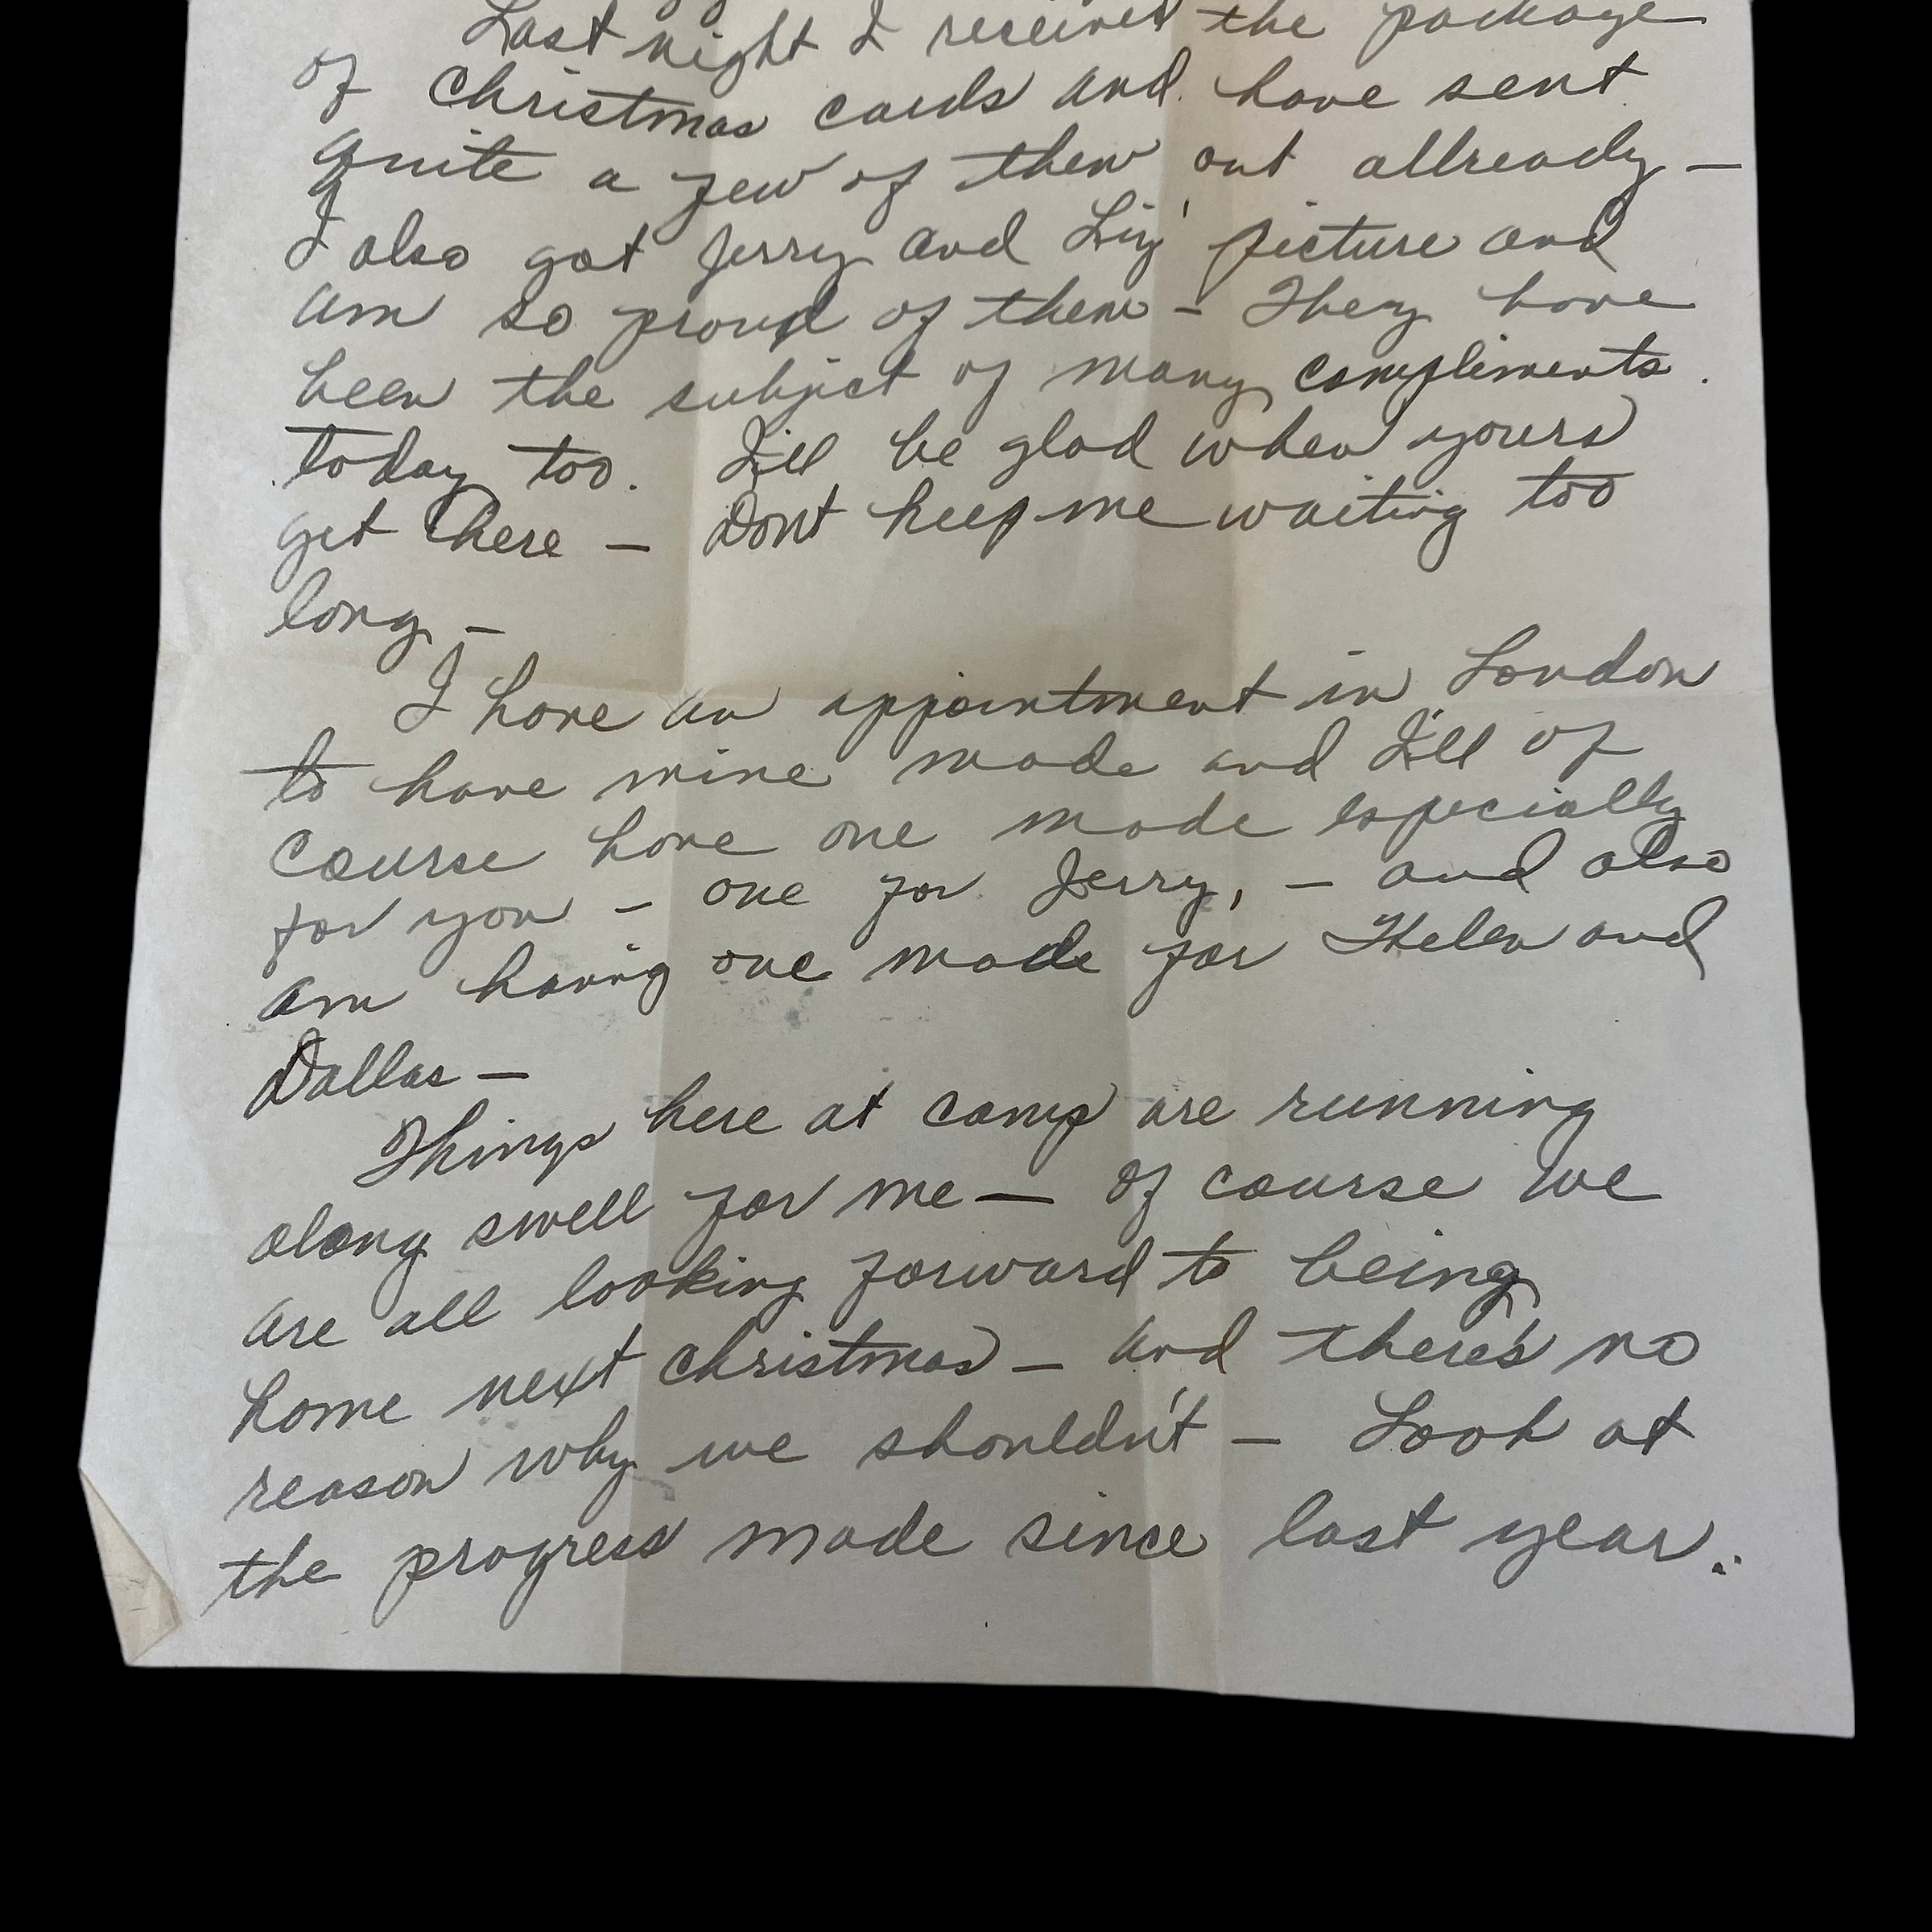 Last night I received the package
of Christmas cards and have sent
quite a few of them out allready —
I also got Jerry and Liz' picture and
am so proud of them - They have
been the subject of many compliments
today too. I'll be glad when yours
get here — Dont keep me waiting too
long -
I have an appointment in London
to have mine made and I'll of
course have one made especially
for you - one for Jerry, - and also
am having one made for Helen and
Dallas —
Things here at camp are running
along swell for me — of course we
are all looking forward to being
home next Christmas — and there's no
reason why we shouldn't — Look at
the progress made since last year..